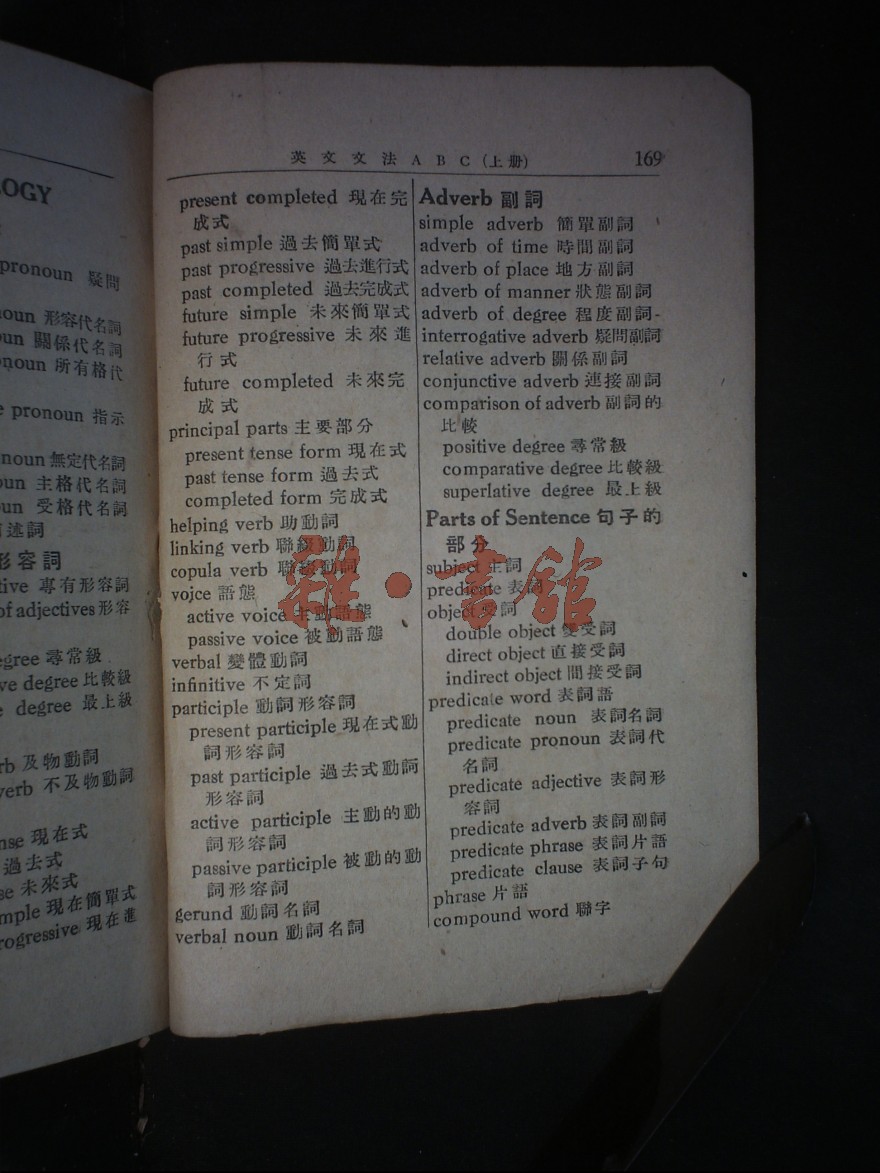 OGY
pronoun 疑問
noun 形容代名詞
oun 關係代名詞
onoun 所有格代
e pronoun 指示
noun 無定代名詞
oun 主格代名詞
un 受格代名詞
述詞
形容詞
tive 專有形容詞
of adjectives 形容
egree 尋常級
ve degree 比較級
e degree 最上級
rb 及物動詞
verb 不及物動詞
nse 現在式
過去式
se 未來式
mple 現在簡單式
rogressive 現在進
英文文法ABC(上册) 169
present completed 現在完
成式
past simple 過去簡單式
past progressive 過去進行式
past completed 過去完成式
future simple 未來簡單式
future progressive 未來進
行式
future completed 未來完
成式
principal parts 主要部分
present tense form 現在式
past tense form 過去式
completed form 完成式
helping verb 助動詞
linking verb 聯綴動詞
copula verb 聯綴動詞
voice 語態
active voice 主動語態
passive voice 被動語態
verbal 變體動詞
infinitive 不定詞
participle 動詞形容詞
present participle 現在式動
詞形容詞
past participle 過去式動詞
形容詞
active participle 主動的動
詞形容詞
passive participle 被動的動
詞形容詞
gerund 動詞名詞
verbal noun 動詞名詞
Adverb 副詞
simple adverb 簡單副詞
adverb of time 時間副詞
adverb of place 地方副詞
adverb of manner 狀態副詞
adverb of degree 程度副詞
interrogative adverb 疑問副詞
relative adverb 關係副詞
conjunctive adverb 連接副詞
comparison of adverb 副詞的
比較
positive degree 尋常級
comparative degree 比較級
superlative degree 最上級
Parts of Sentence 句子的
部分
subject 主詞
predicate 表詞
object 受詞
double object 雙受詞
direct object 直接受詞
indirect object 間接受詞
predicate word 表詞語
predicate noun 表詞名詞
predicate pronoun 表詞代
名詞
predicate adjective 表詞形
容詞
predicate adverb 表詞副詞
predicate phrase 表詞片語
predicate clause 表詞子句
phrase 片語
compound word 聯字
雜·書館